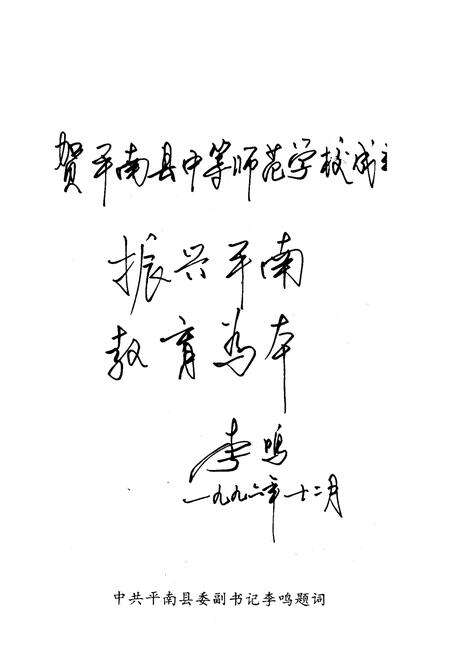 贺平南县中等师范学校成立
振兴平南
教育为本
李鸣
一九九六年十二月
中共平南县委副书记李鸣题词